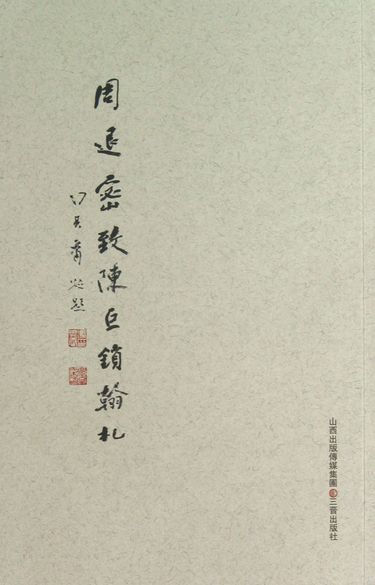 周退密致陳巨鎖翰札
題
山西出版傳媒集團 三晉出版社